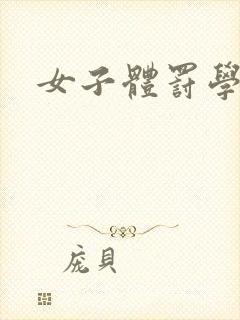 女子體罰學
庞貝